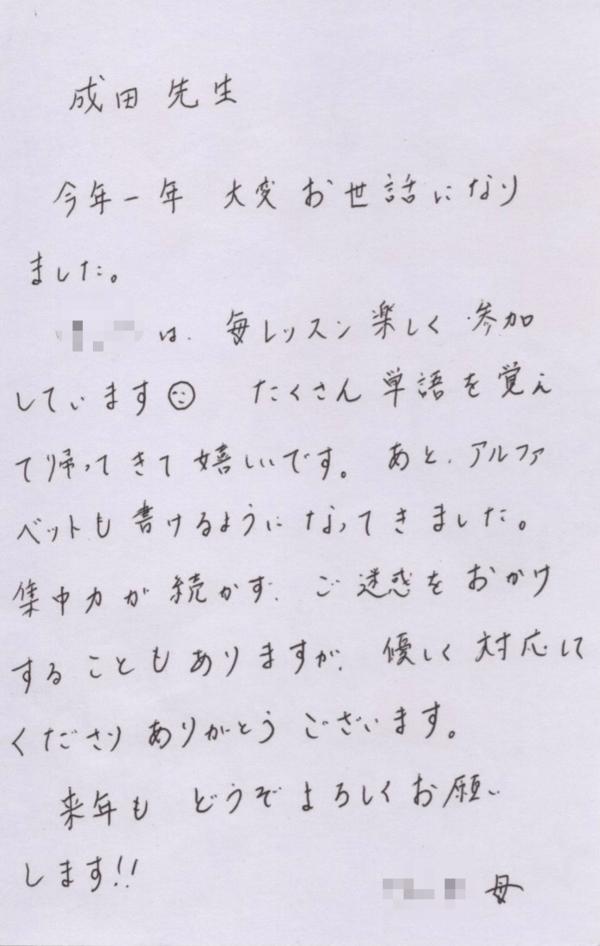 成田 先生
今年一年 大変 お世話になり
ました。
は、毎レッスン 楽しく 参加
しています☺ たくさん 単語を覚え
て帰ってきて嬉しいです。あと、アルファ
ベットも 書けるように なってきました。
集中力が 続かず、ご迷惑を おかけ
することもありますが、優しく 対応して
くださり ありがとう ございます。
来年も どうぞ よろしくお願い
します!!
母